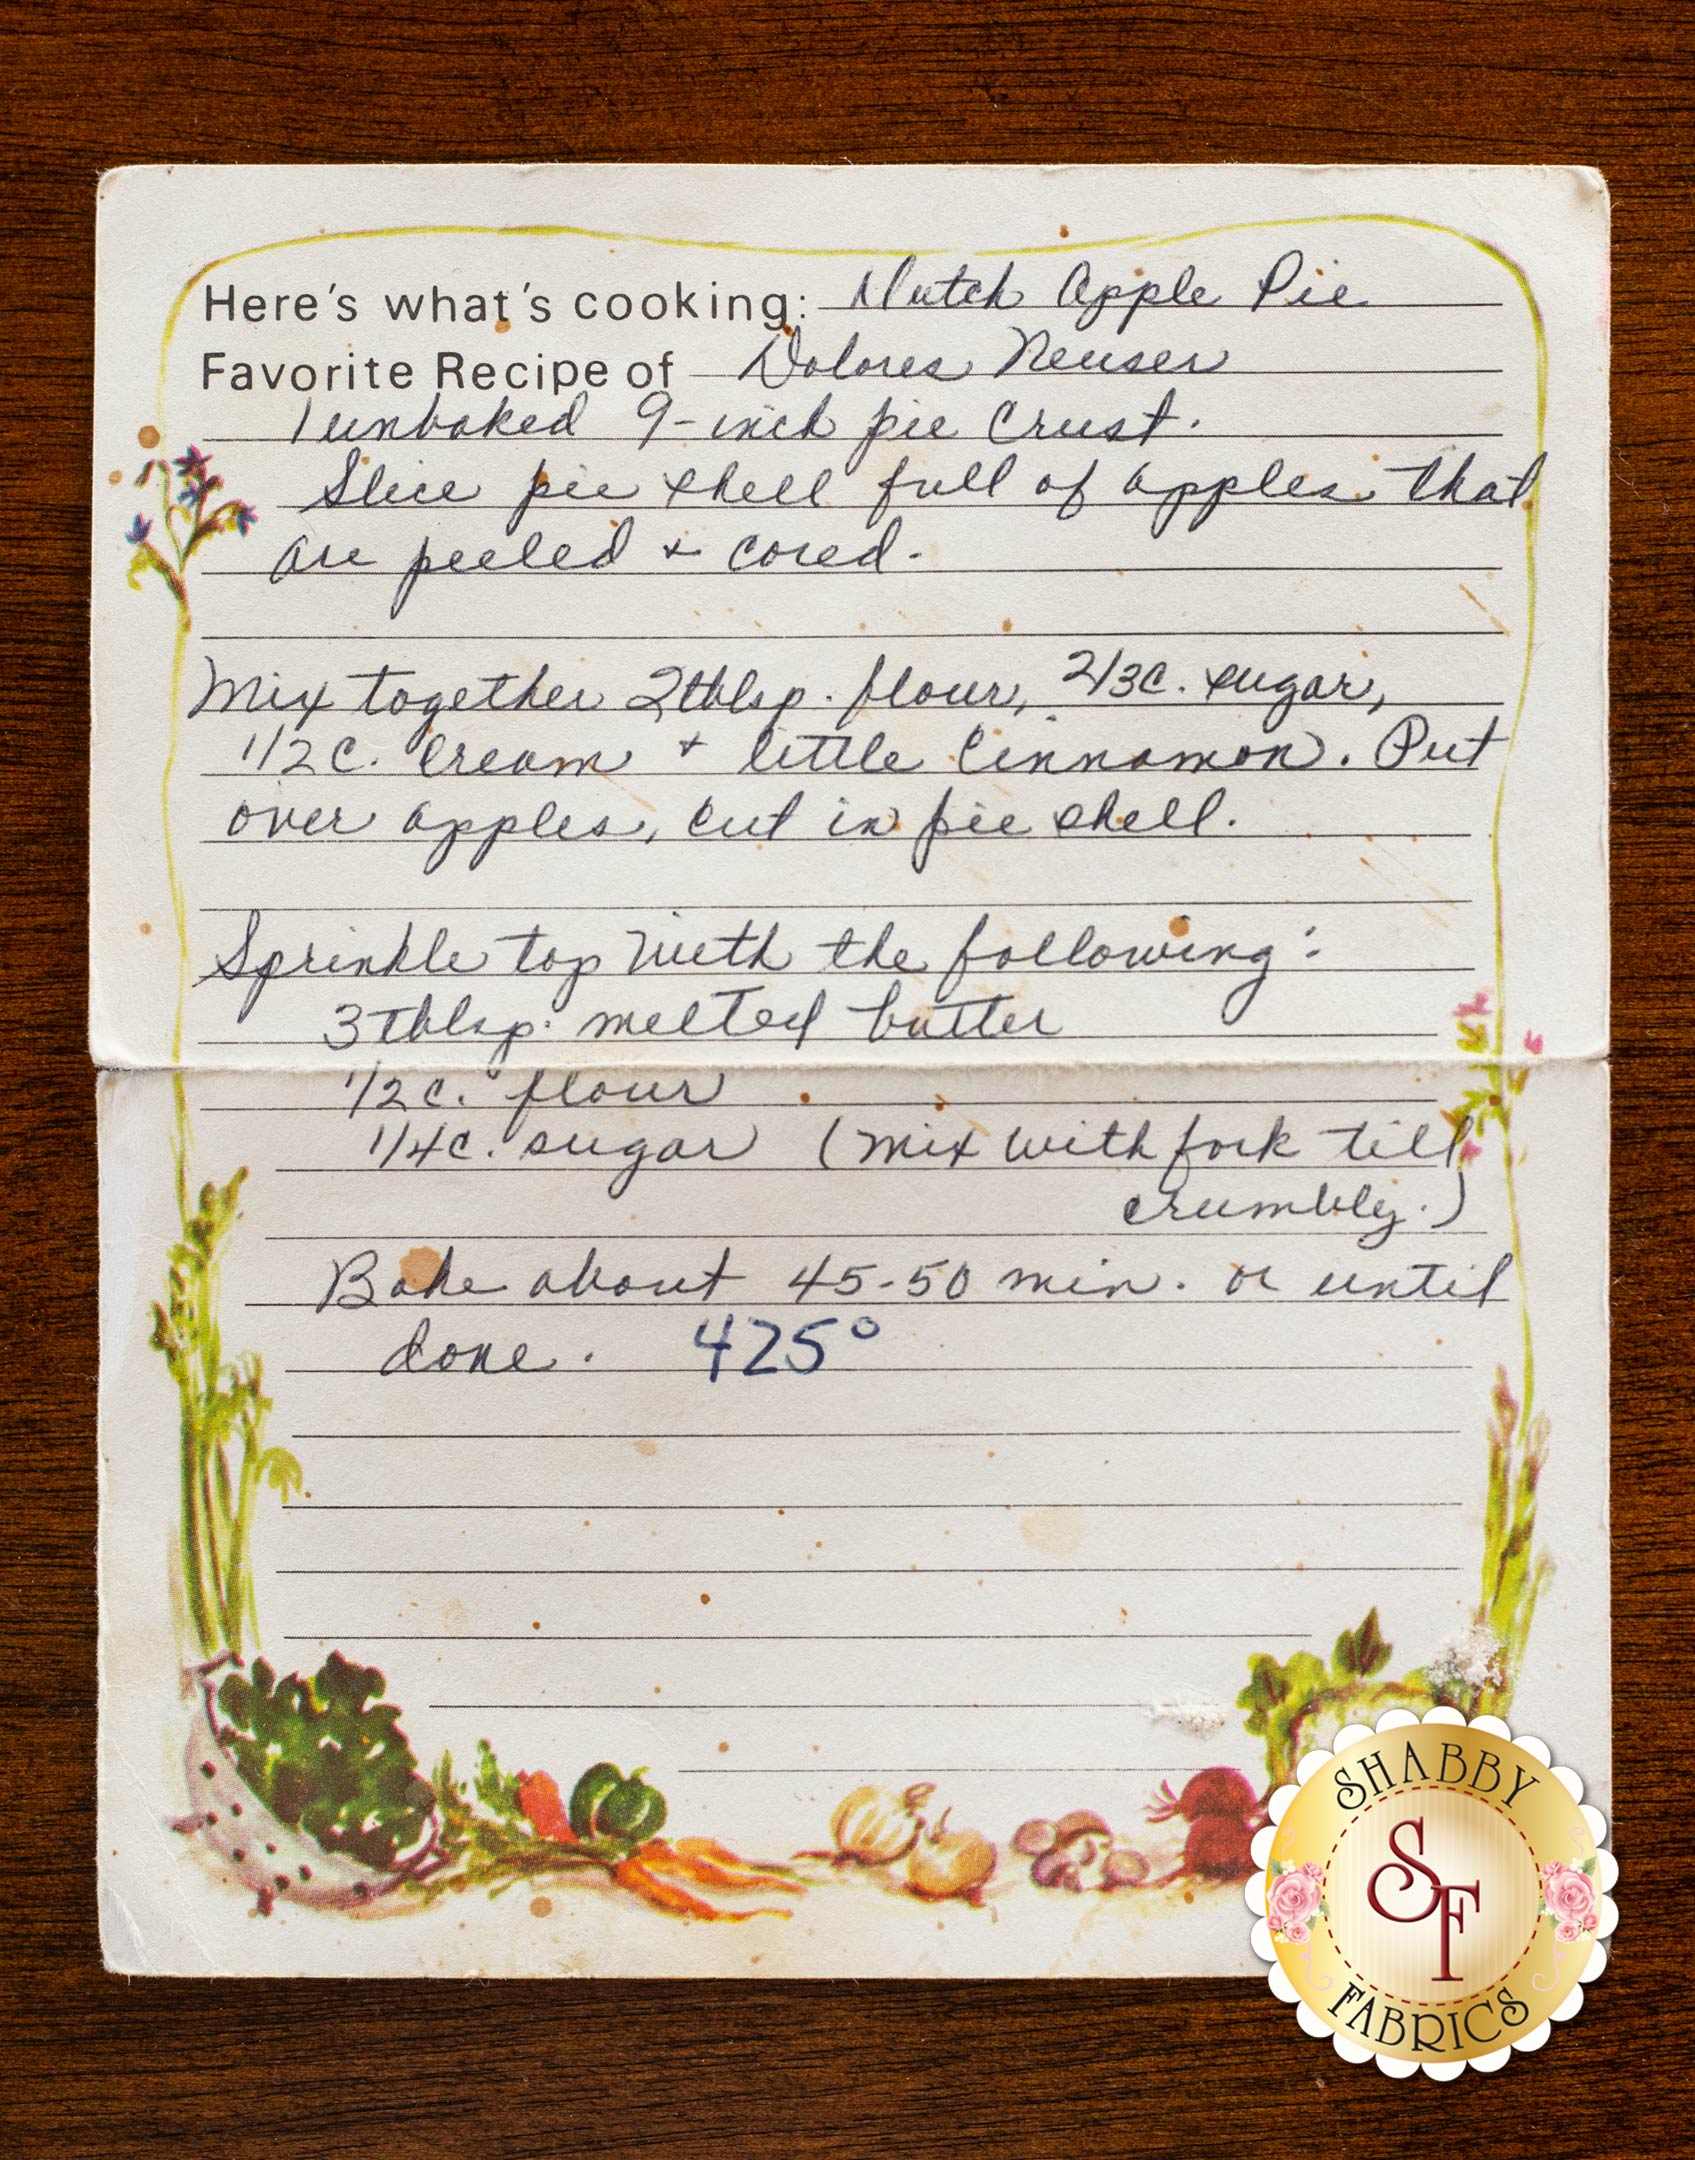 Here's what's cooking: Dutch Apple Pie
Favorite Recipe of Dolores Neuser
1 unbaked 9-inch pie crust.
Slice pie shell full of apples that
are peeled + cored.
Mix together 2 tblsp. flour, 2/3 c. sugar,
1/2 c. cream + little cinnamon. Put
over apples, cut in pie shell.
Sprinkle top with the following:
3 tblsp. melted butter
1/2 c. flour
1/4 c. sugar (mix with fork till
crumbly.)
Bake about 45-50 min. or until
done. 425°
SHABBY
SF
FABRICS